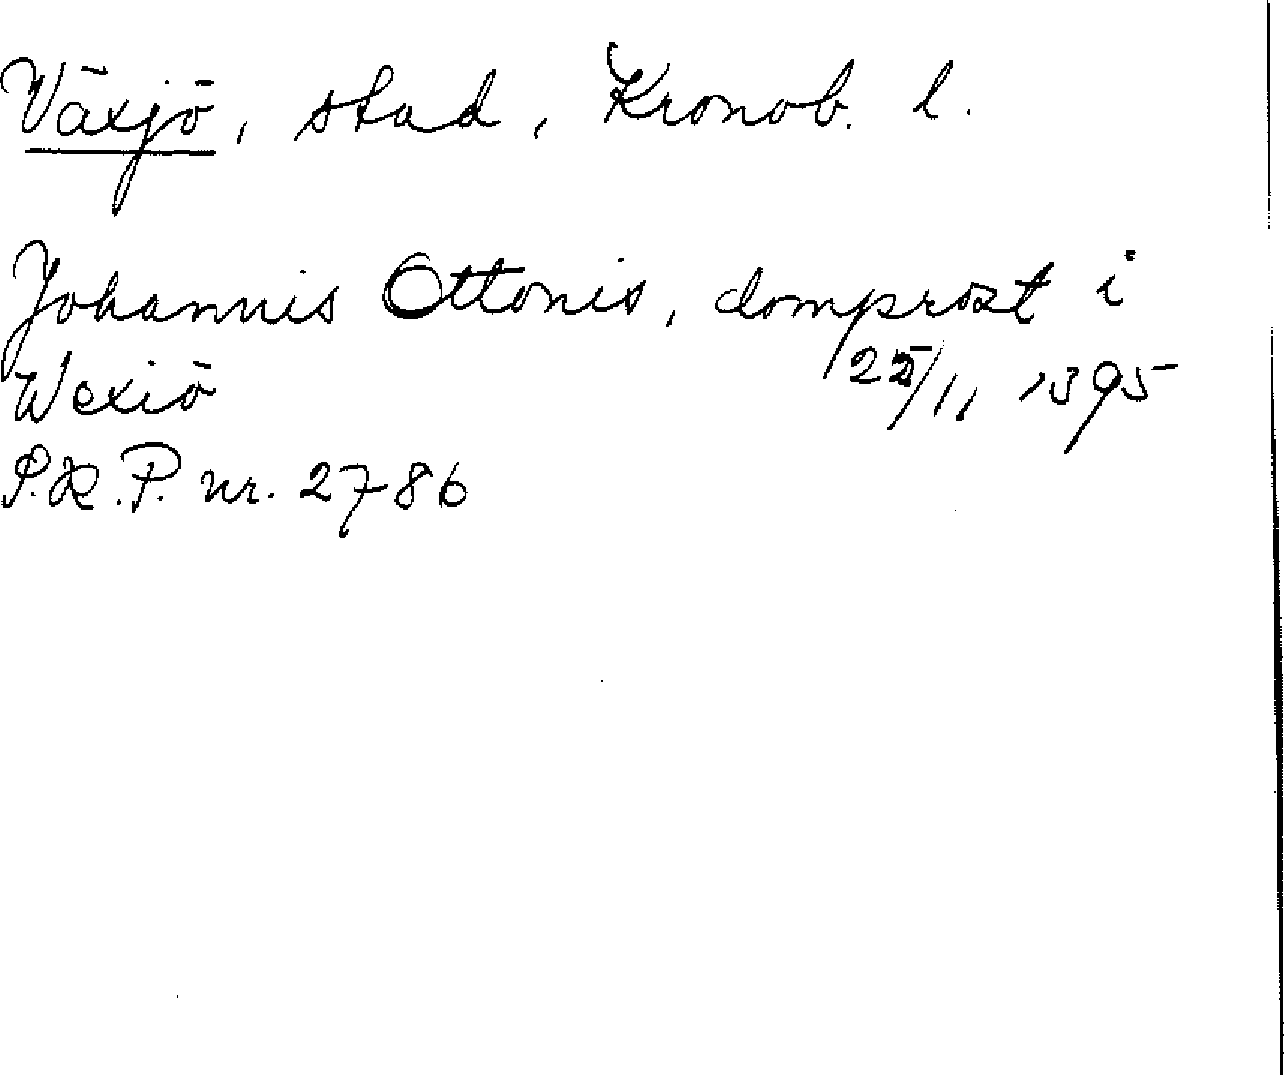 Växjö, stad, Kronob. l.
Johannis Ottonis, domprost i
Wexiö 25/11 1395
S.R.P. nr. 2786